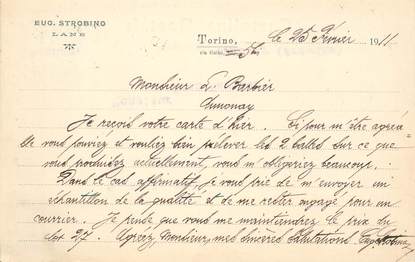 EUG. STROBINO
LANE
Torino, le 25 Février 1911
Monsieur L Barbier
Annonay
Je reçois votre carte d'hier. Si pour m'être agréa-
ble vous pouviez et vouliez bien prélever les 2 balles sur ce que
vous produisez actuellement, vous m'obligeriez beaucoup.
Dans le cas affirmatif je vous prie de m'envoyer un
échantillon de la qualité et de me rester engagé pour un
courrier. Je pense que vous me maintiendrez le prix du
lot 27. Agréez, Monsieur, mes sincères salutations Eug. Strobino